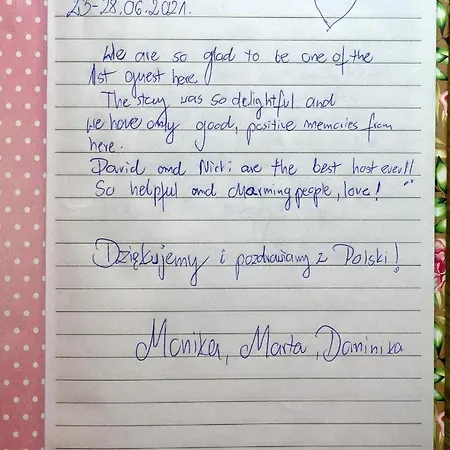 23-28.06.2021.
We are so glad to be one of the
1st guest here
The stay was so delightful and
we have only good, positive memories from
here.
David and Nicki are the best host ever!!
So helpful and charming people, love!
Dziękujemy i pozdrawiamy z Polski!
Monika, Marta, Dominika